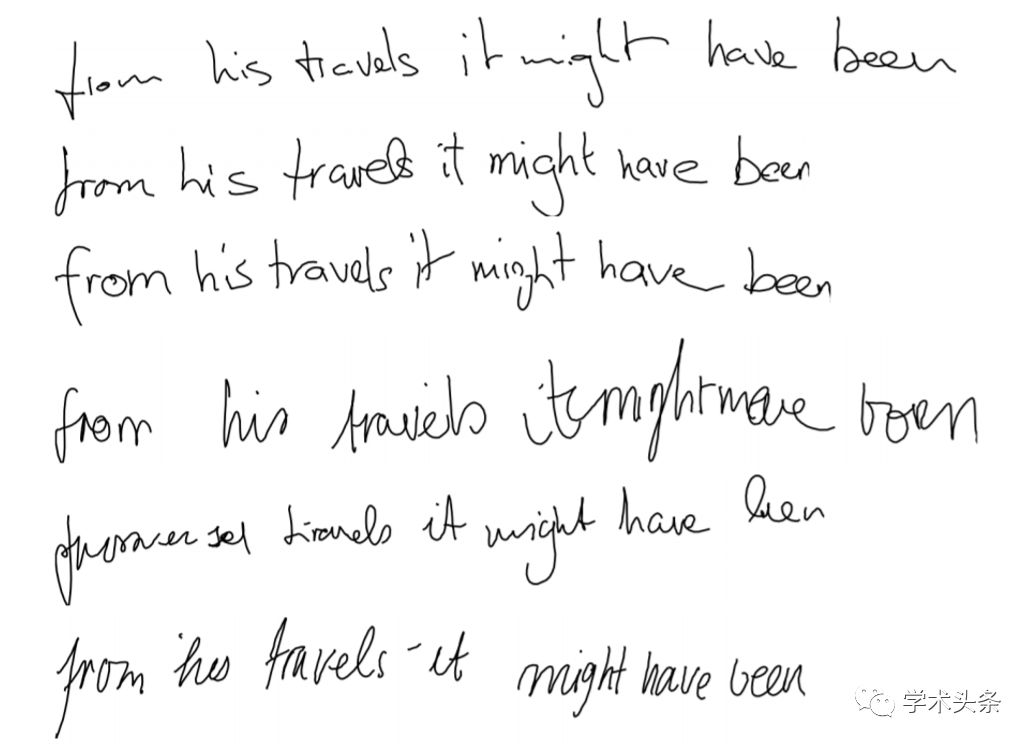 from his travels it might have been
from his travels it might have been
from his travels it might have been
from his travels it
travels it might have been
from his travels it might have been
学术头条